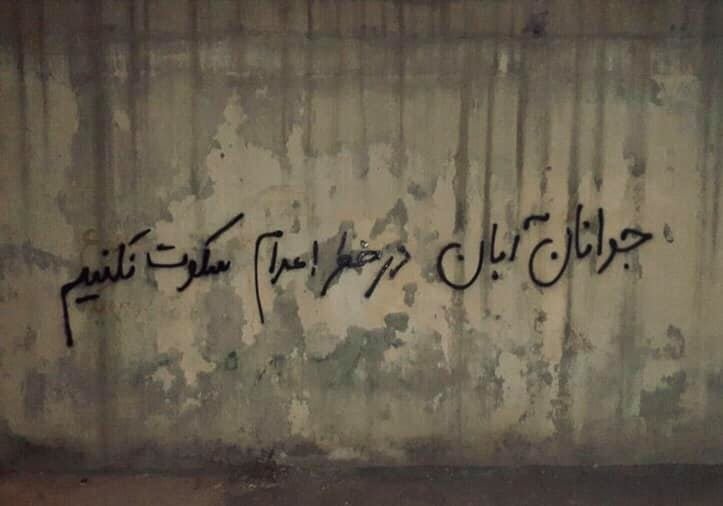 جوانان آبان در خطر اعدام سکوت نکنیم